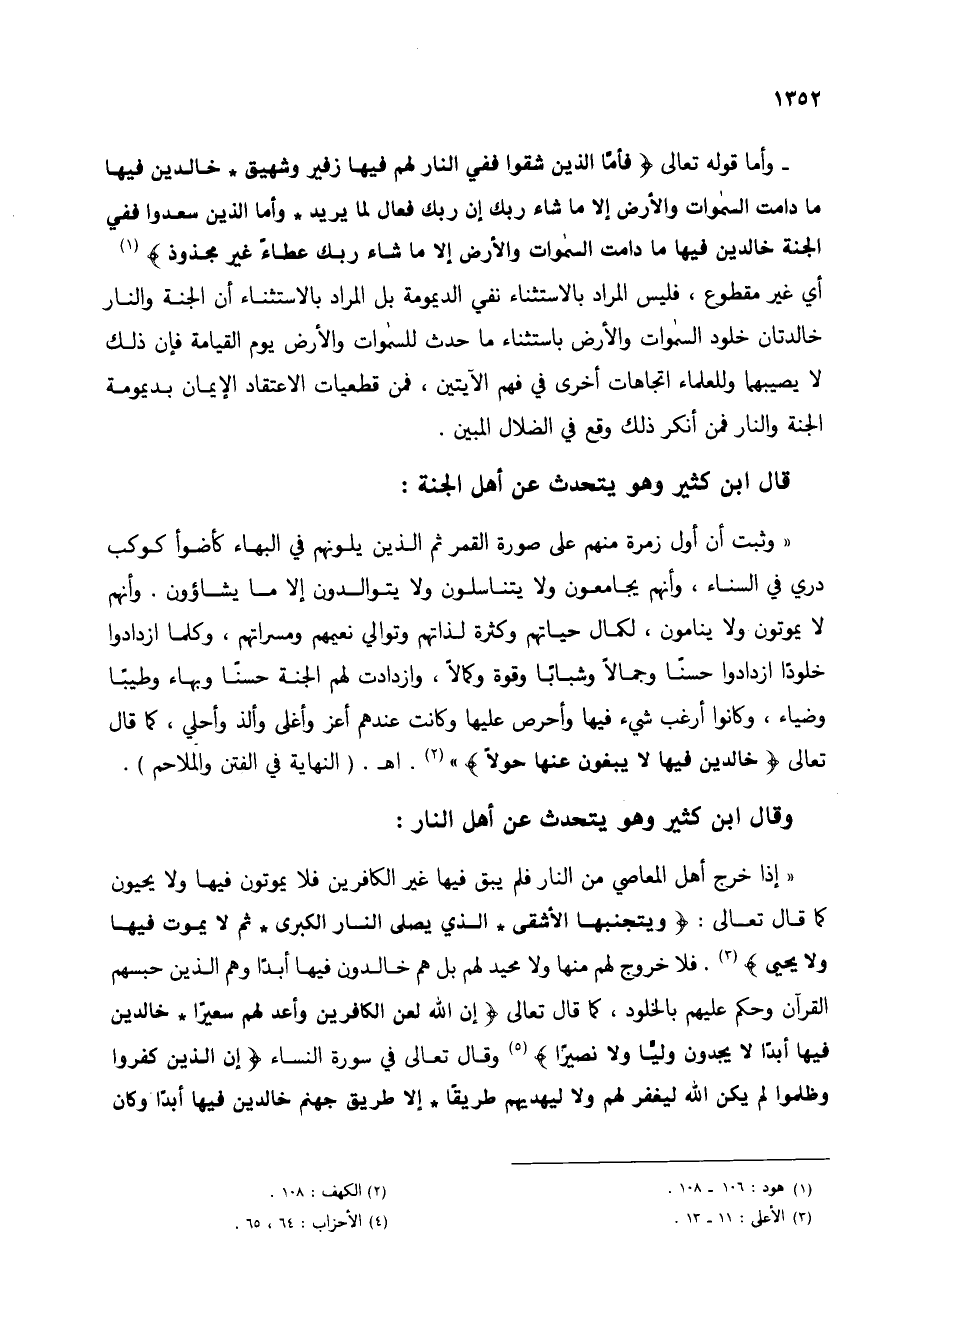 ١٣٥٢
ـ وأما قوله تعالى ﴿ فأمّا الذين شقوا ففي النار لهم فيها زفير وشهيق * خالدين فيها
ما دامت السمٰوات والأرض إلا ما شاء ربك إن ربك فعال لما يريد * وأما الذين سعدوا ففي
الجنة خالدين فيها ما دامت السمٰوات والأرض إلا ما شاء ربك عطاءً غير مجذوذ ﴾ (١)
أي غير مقطوع ، فليس المراد بالاستثناء نفي الديمومة بل المراد بالاستثناء أن الجنة والنار
خالدتان خلود السمٰوات والأرض باستثناء ما حدث للسمٰوات والأرض يوم القيامة فإن ذلك
لا يصيبهما وللعلماء اتجاهات أخرى في فهم الآيتين ، فمن قطعيات الاعتقاد الإيمان بديمومة
الجنة والنار فمن أنكر ذلك وقع في الضلال المبين .
قال ابن كثير وهو يتحدث عن أهل الجنة :
« وثبت أن أول زمرة منهم على صورة القمر ثم الذين يلونهم في البهاء كأضوأ كوكب
دري في السناء ، وأنهم يجامعون ولا يتناسلون ولا يتوالدون إلا ما يشاؤون . وأنهم
لا يموتون ولا ينامون ، لكمال حياتهم وكثرة لذاتهم وتوالي نعيمهم ومسراتهم ، وكلما ازدادوا
خلودًا ازدادوا حسنًا وجمالاً وشبابًا وقوة وكمالاً ، وازدادت لهم الجنة حسنًا وبهاء وطيبًا
وضياء ، وكانوا أرغب شيء فيها وأحرص عليها وكانت عندهم أعز وأغلى وألذ وأحلي ، كما قال
تعالى ﴿ خالدين فيها لا يبغون عنها حولاً ﴾ » (٢) . اهـ . ( النهاية في الفتن والملاحم ) .
وقال ابن كثير وهو يتحدث عن أهل النار :
« إذا خرج أهل المعاصي من النار فلم يبق فيها غير الكافرين فلا يموتون فيها ولا يحيون
كما قال تعالى : ﴿ ويتجنبها الأشقى * الذي يصلى النار الكبرى * ثم لا يموت فيها
ولا يحيى ﴾ (٣) . فلا خروج لهم منها ولا محيد لهم بل هم خالدون فيها أبدًا وهم الذين حبسهم
القرآن وحكم عليهم بالخلود ، كما قال تعالى ﴿ إن الله لعن الكافرين وأعد لهم سعيرًا * خالدين
فيها أبدًا لا يجدون وليًّا ولا نصيرًا ﴾ (٥) وقال تعالى في سورة النساء ﴿ إن الذين كفروا
وظلموا لم يكن الله ليغفر لهم ولا ليهديهم طريقًا * إلا طريق جهنم خالدين فيها أبدًا وكان
(١) هود : ١٠٦ ـ ١٠٨ .
(٢) الكهف : ١٠٨ .
(٣) الأعلى : ١١ ـ ١٣ .
(٤) الأحزاب : ٦٤ ، ٦٥ .